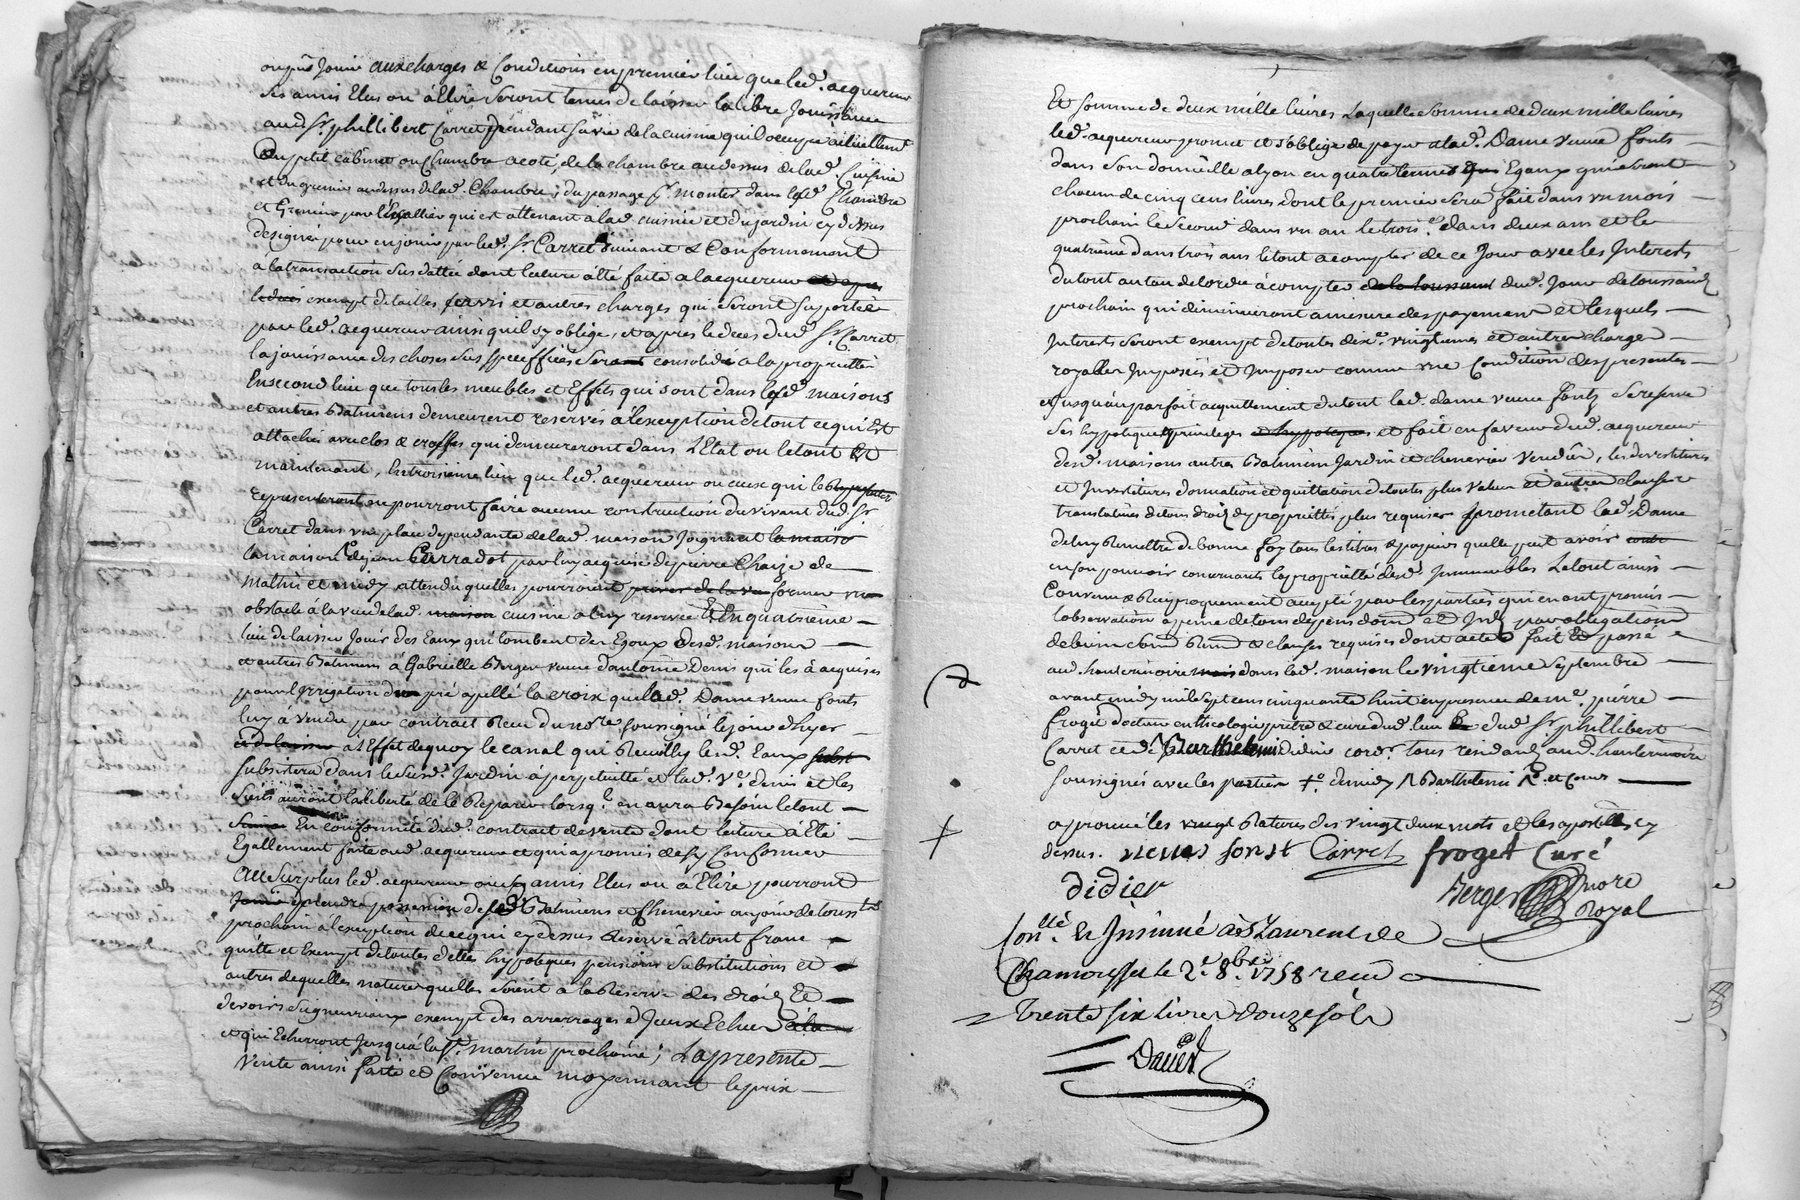 jouir aux charges & Conditions en premier lieu que led. acquereur
ses amis Elus ou à Elire seront tenus de laisser la libre Jouissance
aud. Sr. phillibert Carret pendant sa vie de la cuisine qu'il occupe actuellement
petit cabinet ou Chambre a coté, de la chambre au dessus de lad. Cuisine
et du grenier au dessus de lad. Chambre, du passage pr. monter dans lesd. Chambre
et Grenier par l'Escallier qui est attenant a lad. cuisine et du jardin cy dessus
designé pour en jouir par led. Sr. Carret suivant & Conformement
a la transaction sus dattée dont lecture a été faite a lacquereur
exempt de tailles servis et autres charges qui seront suportée
par led. acquereur ainsi qu'il s'y oblige, et apres le deces dud. Sr. Carret
la jouissance des choses sus speciffiées sera consolidée a la proprietté
En second lieu que tous les meubles et Effets qui sont dans lesd. maisons
et autres Batimens demeurent reservés à l'exception de tout ce qui Est
attaché avec clos & croffes qui demeureront dans L'Etat ou le tout Est
maintenant, En troisieme lieu que led. acquereur ou ceux qui le
representeront ne pourront faire aucune construction du vivant dud. Sr.
Carret dans une place dependante de lad. maison joignant la maiso
la maison de jean Carradot par luy acquise de pierre Chaize de
matin et midy attendu quelles pourroient former un
obstacle à la vue de lad. maison cuisine a luy reservée Et En quatrieme
lieu de laisser Jouir des Eaux qui tombent des Egoux desd. maisons
et autres Batimens à Gabrielle Berger veuve d'antoine Denis qui les à acquises
pour l'irrigation d'un pré apellé la croix que lad. Dame veuve fonts
luy à vendu par contract Reçu du nore. soussigné le jour d'hyer
à l'Effet de quoy le canal qui Recueille lesd. Eaux subst
subsistera dans le susd. Jardin à perpetuitté et lad. Ve. denis et les
siens auront la liberté de le Reparer lorsq. en aura Besoin le tout
En conformité dud. contract de vente dont lecture à Eté
Egallement faite aud. acquereur et qui a promis de s'y Conformer
Au Surplus led. acquereur ou ses amis Elus ou à Elire pourront
prendre possession desd. Batimens et Chenevier au jour de Touss.
prochain à l'exception de ce qui cy dessus Reservé Le tout franc
quitte et Exempt de toutes dettes hypoteques pensions substitutions et
autres de quelles natures quelles soient à la Reserve des droits Et
devoirs seigneuriaux exempt des arrerages d'Jceux Echus
et qui Echerront jusqua la St. martin prochaine; La presente
Vente ainsi faite et Convenue moyennant le prix
Et somme de deux mille livres Laquelle somme de deux mille livres
led. acquereur promet et s'oblige de payer a lad. Dame veuve fonts
dans son domicille a lyon en quatre termes Egaux qui seront
chacun de cinq cens livres dont le premier sera fait dans un mois
prochain le second dans un an le trois.e dans deux ans et le
quatrieme dans trois ans le tout a compter de ce jour avec les Interets
du tout au taux de lordre à compter de la toussaint dud. Jour de toussaints
prochain qui diminueront a mesure des payemens et lesquels
Interets seront exempt de toutes dix.e vingtiemes et autres charges
royalles Imposées et Imposer comme une Condition des presentes
et jusqu'au parfait acquittement du tout lad. dame veuve fonts se reserve
ses hypoteques privileges et hypoteques et fait en faveur dud. acquereur
desd. maisons autres Batimens Jardin et chenevier vendus, les devestitures
et Investitures donnation et quittation de toutes plus values et autres clauses
translatives de tous droits de propriettés plus requises promettant lad. Dame
de luy Remettre de bonne foy tous les titres & papiers quelle peut avoir
en son pouvoir concernants la proprietté desd. Immeubles Le tout ainsi
Convenu & Reciproquement accepté par les parties qui en ont promis
l'observation à peine de tous depens dom. et Int. par obligation
de biens soum. Renon. & clauses requises dont acte fait Et passé
aud. hauterivoire dans lad. maison le vingtieme septembre
avant midy mil sept cens cinquante huit en presence de me. pierre
froget docteur en theologie pretre & curé dud. lieu dud. Sr. phillibert
Carret et de Barthelemi didier cord.r tous residants aud. hauterivoire
soussignés avec les parties
aprouvé les vingt Ratures des vingt deux mots et les apostilles cy
dessus. fonst Carret froget Curé
didier
Berger nore Royal
Con.llé Et Insinué à St Laurent de
Chamousset le 2e. 8bre. 1758 reçu
Trente six livres douze sols
David